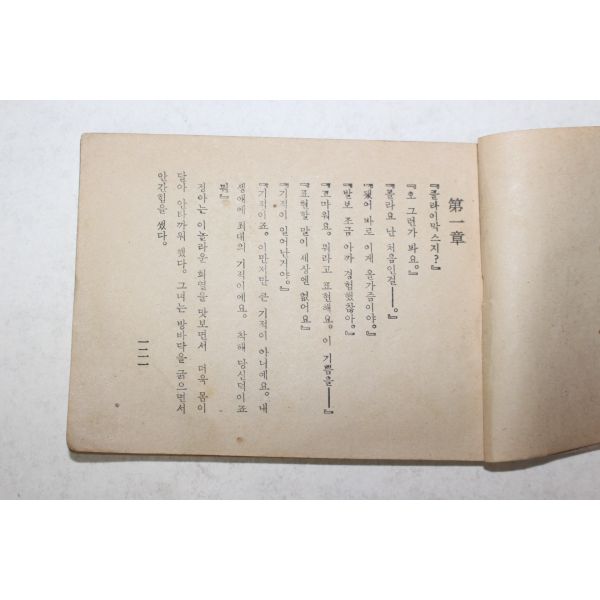 第一章
『클라이막스지?』
『호 그런가 봐요。』
『몰라요 난 처음인걸——。』
『愛아 바로 이게 올가즘이야。』
『방금 조금 아까 경험했잖아。』
『고마워요。 뭐라고 표현해요。 이 기쁨을——』
『표현할 말이 세상엔 없어요』
『기적이 일어난거야。』
『기적이죠。 이만저만 큰 기적이 아니에요。 내
생애에 최대의 기적이에요。 착해 당신덕이죠
뭐』
정아는 이놀라운 희열을 맛보면서 더욱 몸이
달아 안타까워 했다。 그녀는 방바닥을 긁으면서
안간힘을 썼다。
一一一